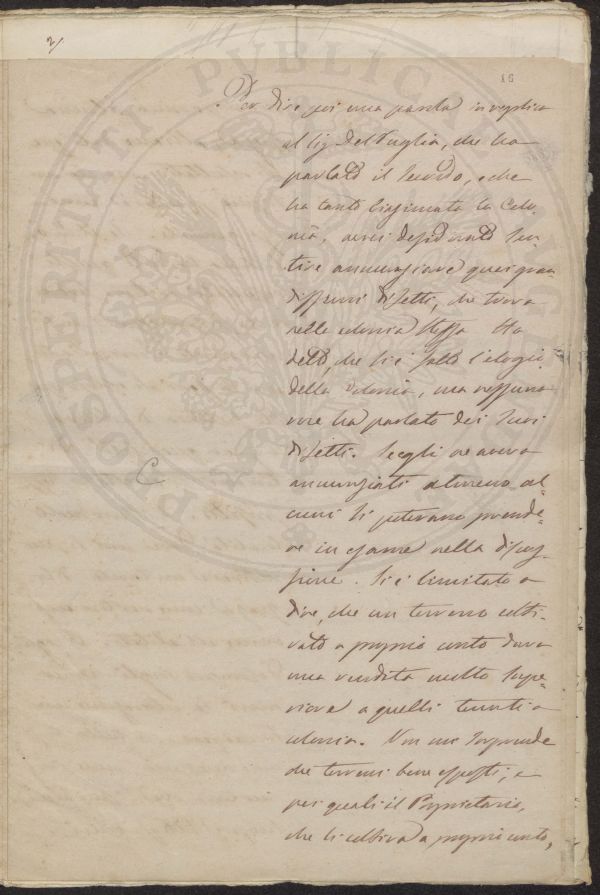 2/
16
Per dire poi una parola in replica
al Sig. Del Puglia, che ha
parlato il secondo, e che
ha tanto biasimata la Colo-
nia, avrei desiderato sen-
tire annunziare quei gran-
dissimi difetti, che trova
nella colonia stessa. Ha
detto, che si è fatto l'elogio
della Colonia, ma nessuno
ne ha parlato dei suoi
difetti. Se egli ne aveva
annunziati almeno al-
cuni si potevano prende-
re in esame nella discus-
sione. Si è limitato a
dire, che un terreno colti-
vato a proprio conto dava
una rendita molto supe-
riore a quelli tenuti a
colonia. Non mi sorprende
che terreni bene esposti, e
per quali il Proprietario,
che li coltiva a proprio conto,
C
PROSPERITATI PUBLICAE AUGENDAE